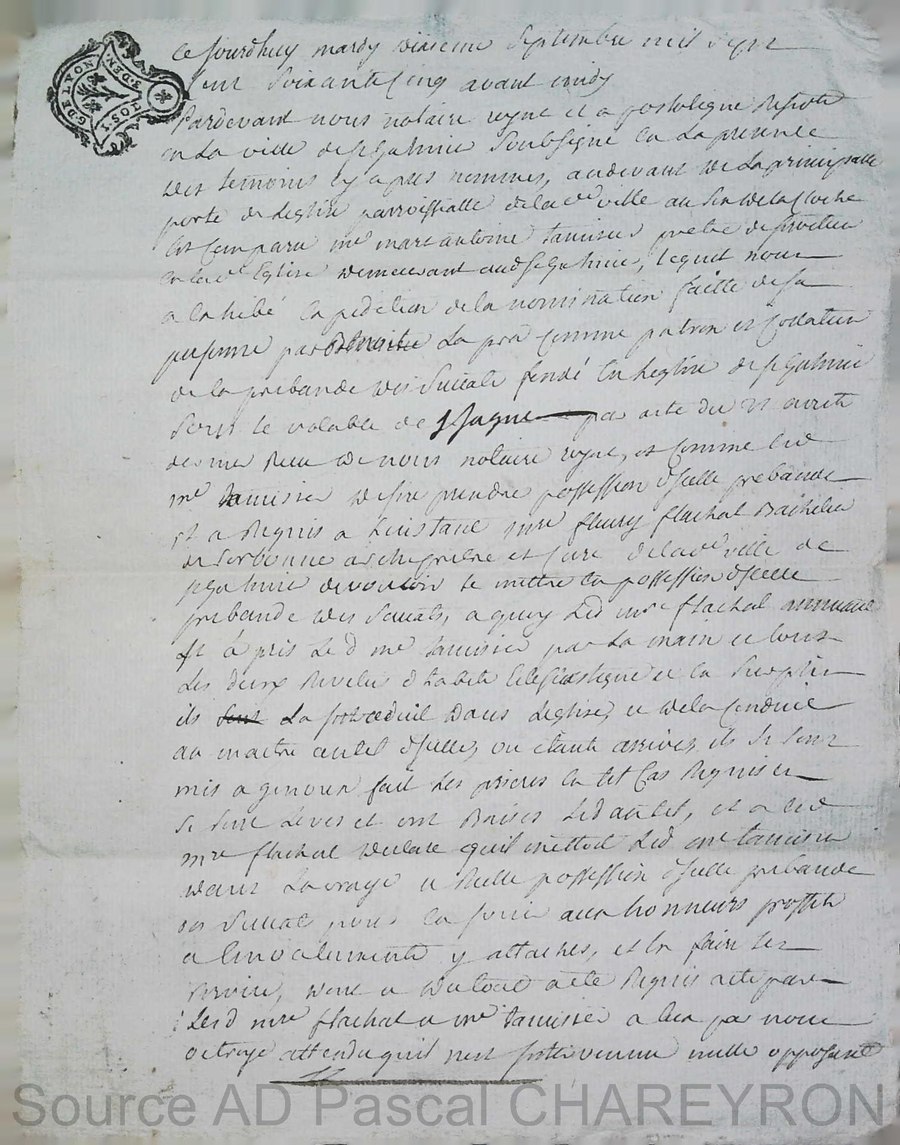 G. DE LYON
2. DEN.
1. SOL
Ce Jourdhuy mardy dixieme Septembre mil Sept
Cent Soixante Cinq avant midy
Pardevant nous notaire royal et apostolique
en La ville de St Galmier Soubsigné en La presence
des temoins Cy apres nommes, audevant de La principalle
porte de Leglise parroissialle de lad. ville au Son de la Cloche
Est Comparu mre marc antoine tamisier pretre
en lad. Eglise demeurant aud St Galmier, lequel nous
a Exhibé de la nomination faitte de sa
personne par Comme patron et Collateur
de la prebande des fondé En Leglise de St Galmier
Sous le vocable de St Jaque par acte du
recu de nous notaire royal, et Comme led
mre tamisier desire prendre possession dicelle prebande
Et a Requis a Linstant mre fleury flachat Bachelier
de Sorbonne archipretre et Curé de lad. ville de
St Galmier de vouloir le mettre En possession dicelle
prebande des a quoy Led mre flachat
Et a pris Led mre tamisier par La main et tous
Les deux Revetus dhabits Eclesiastiques et En Surplis
ils dans Leglise, et de la Conduit
au maitre autel dicelle, ou etants arrives, ils Se Sont
mis a genoux fait Les prieres En tel Cas Requises
Se Sont Leves et ont Baisés Led autel, et a led
mre flachat declaré quil mettoit Led mre tamisier
dans La vraye et Reelle possession dicelle prebande
pour En jouir aux honneurs proffits
et Emoluments y attaches, et En faire Le
Service, dont et du tout acte Requis acte par
Led mre flachat et mre tamisier a Eux par nous
octroyé attendu quil nest intervenu nulle opposant
Source AD Pascal CHAREYRON